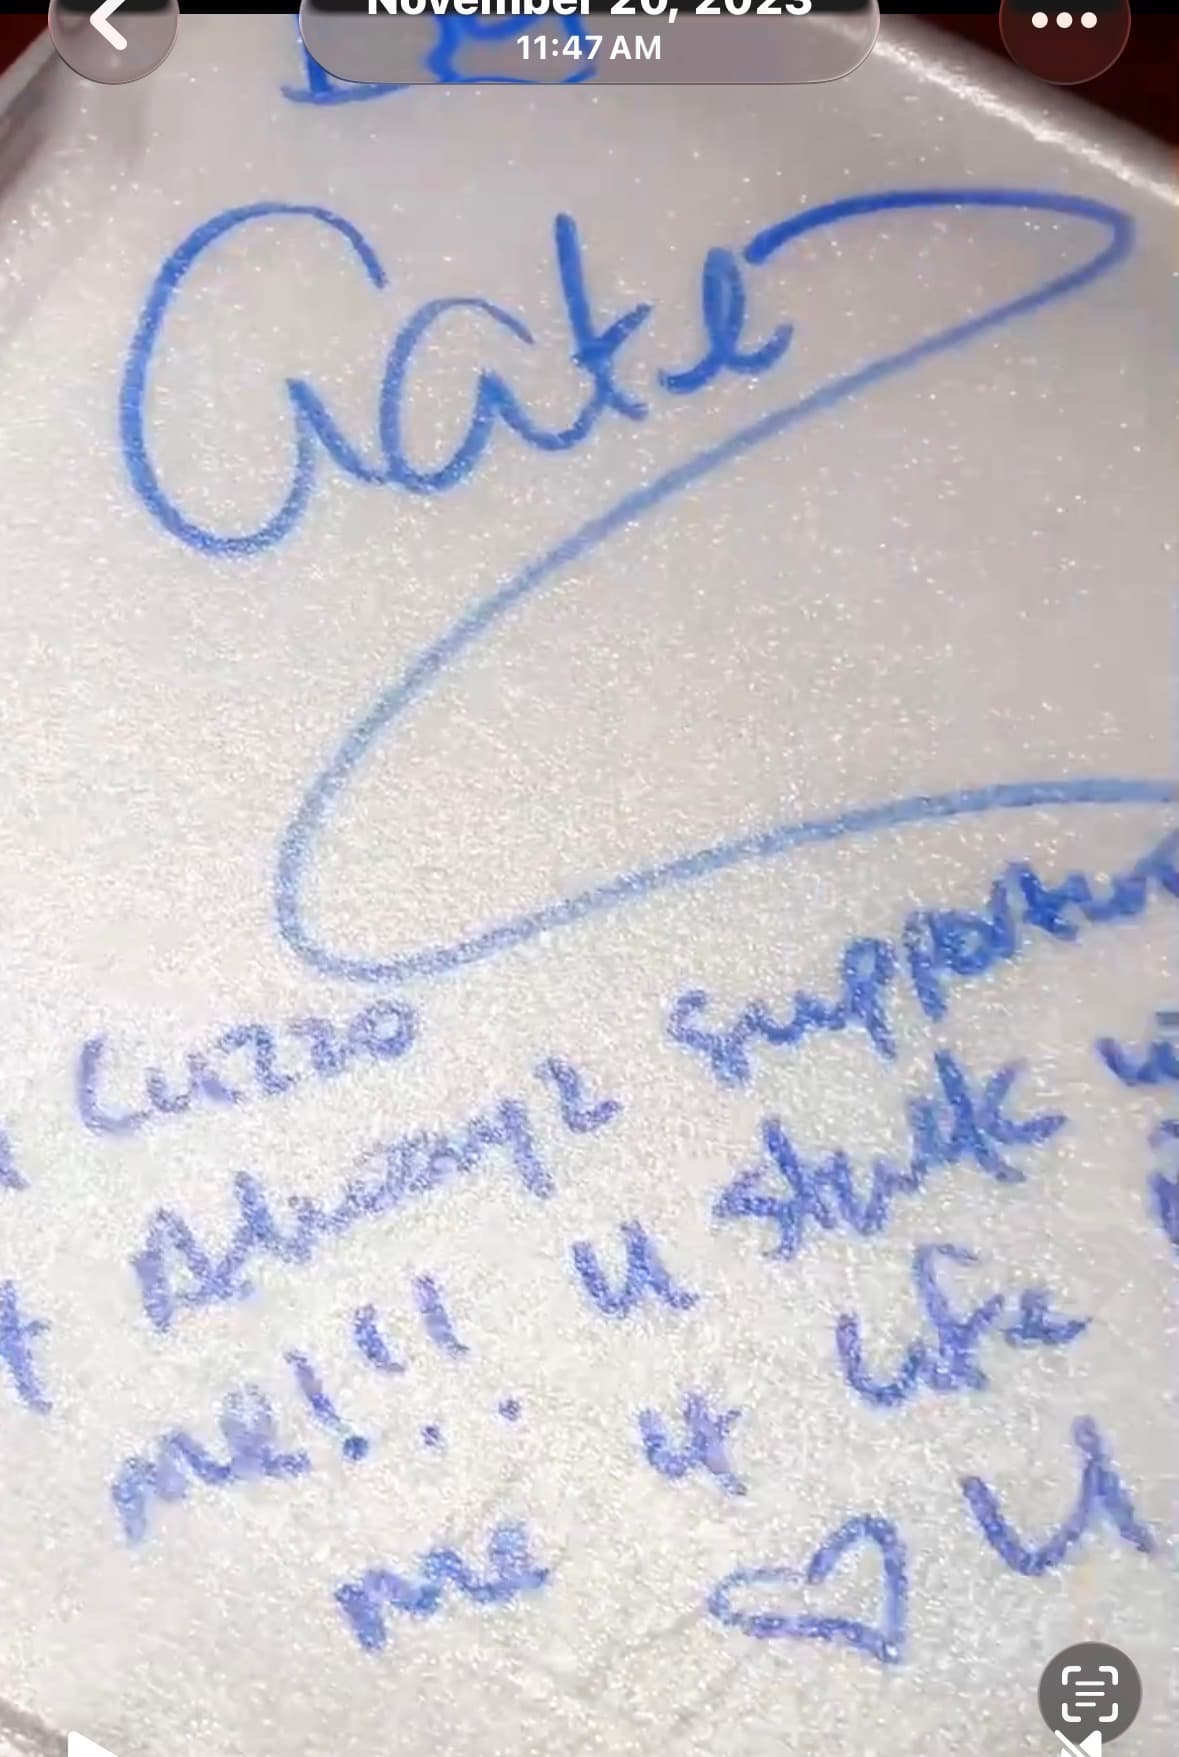 November 20, 2023
11:47 AM
Cake
Cuzzo
Alwayz support
me!!! U stuck
me 4 Life
♡ U